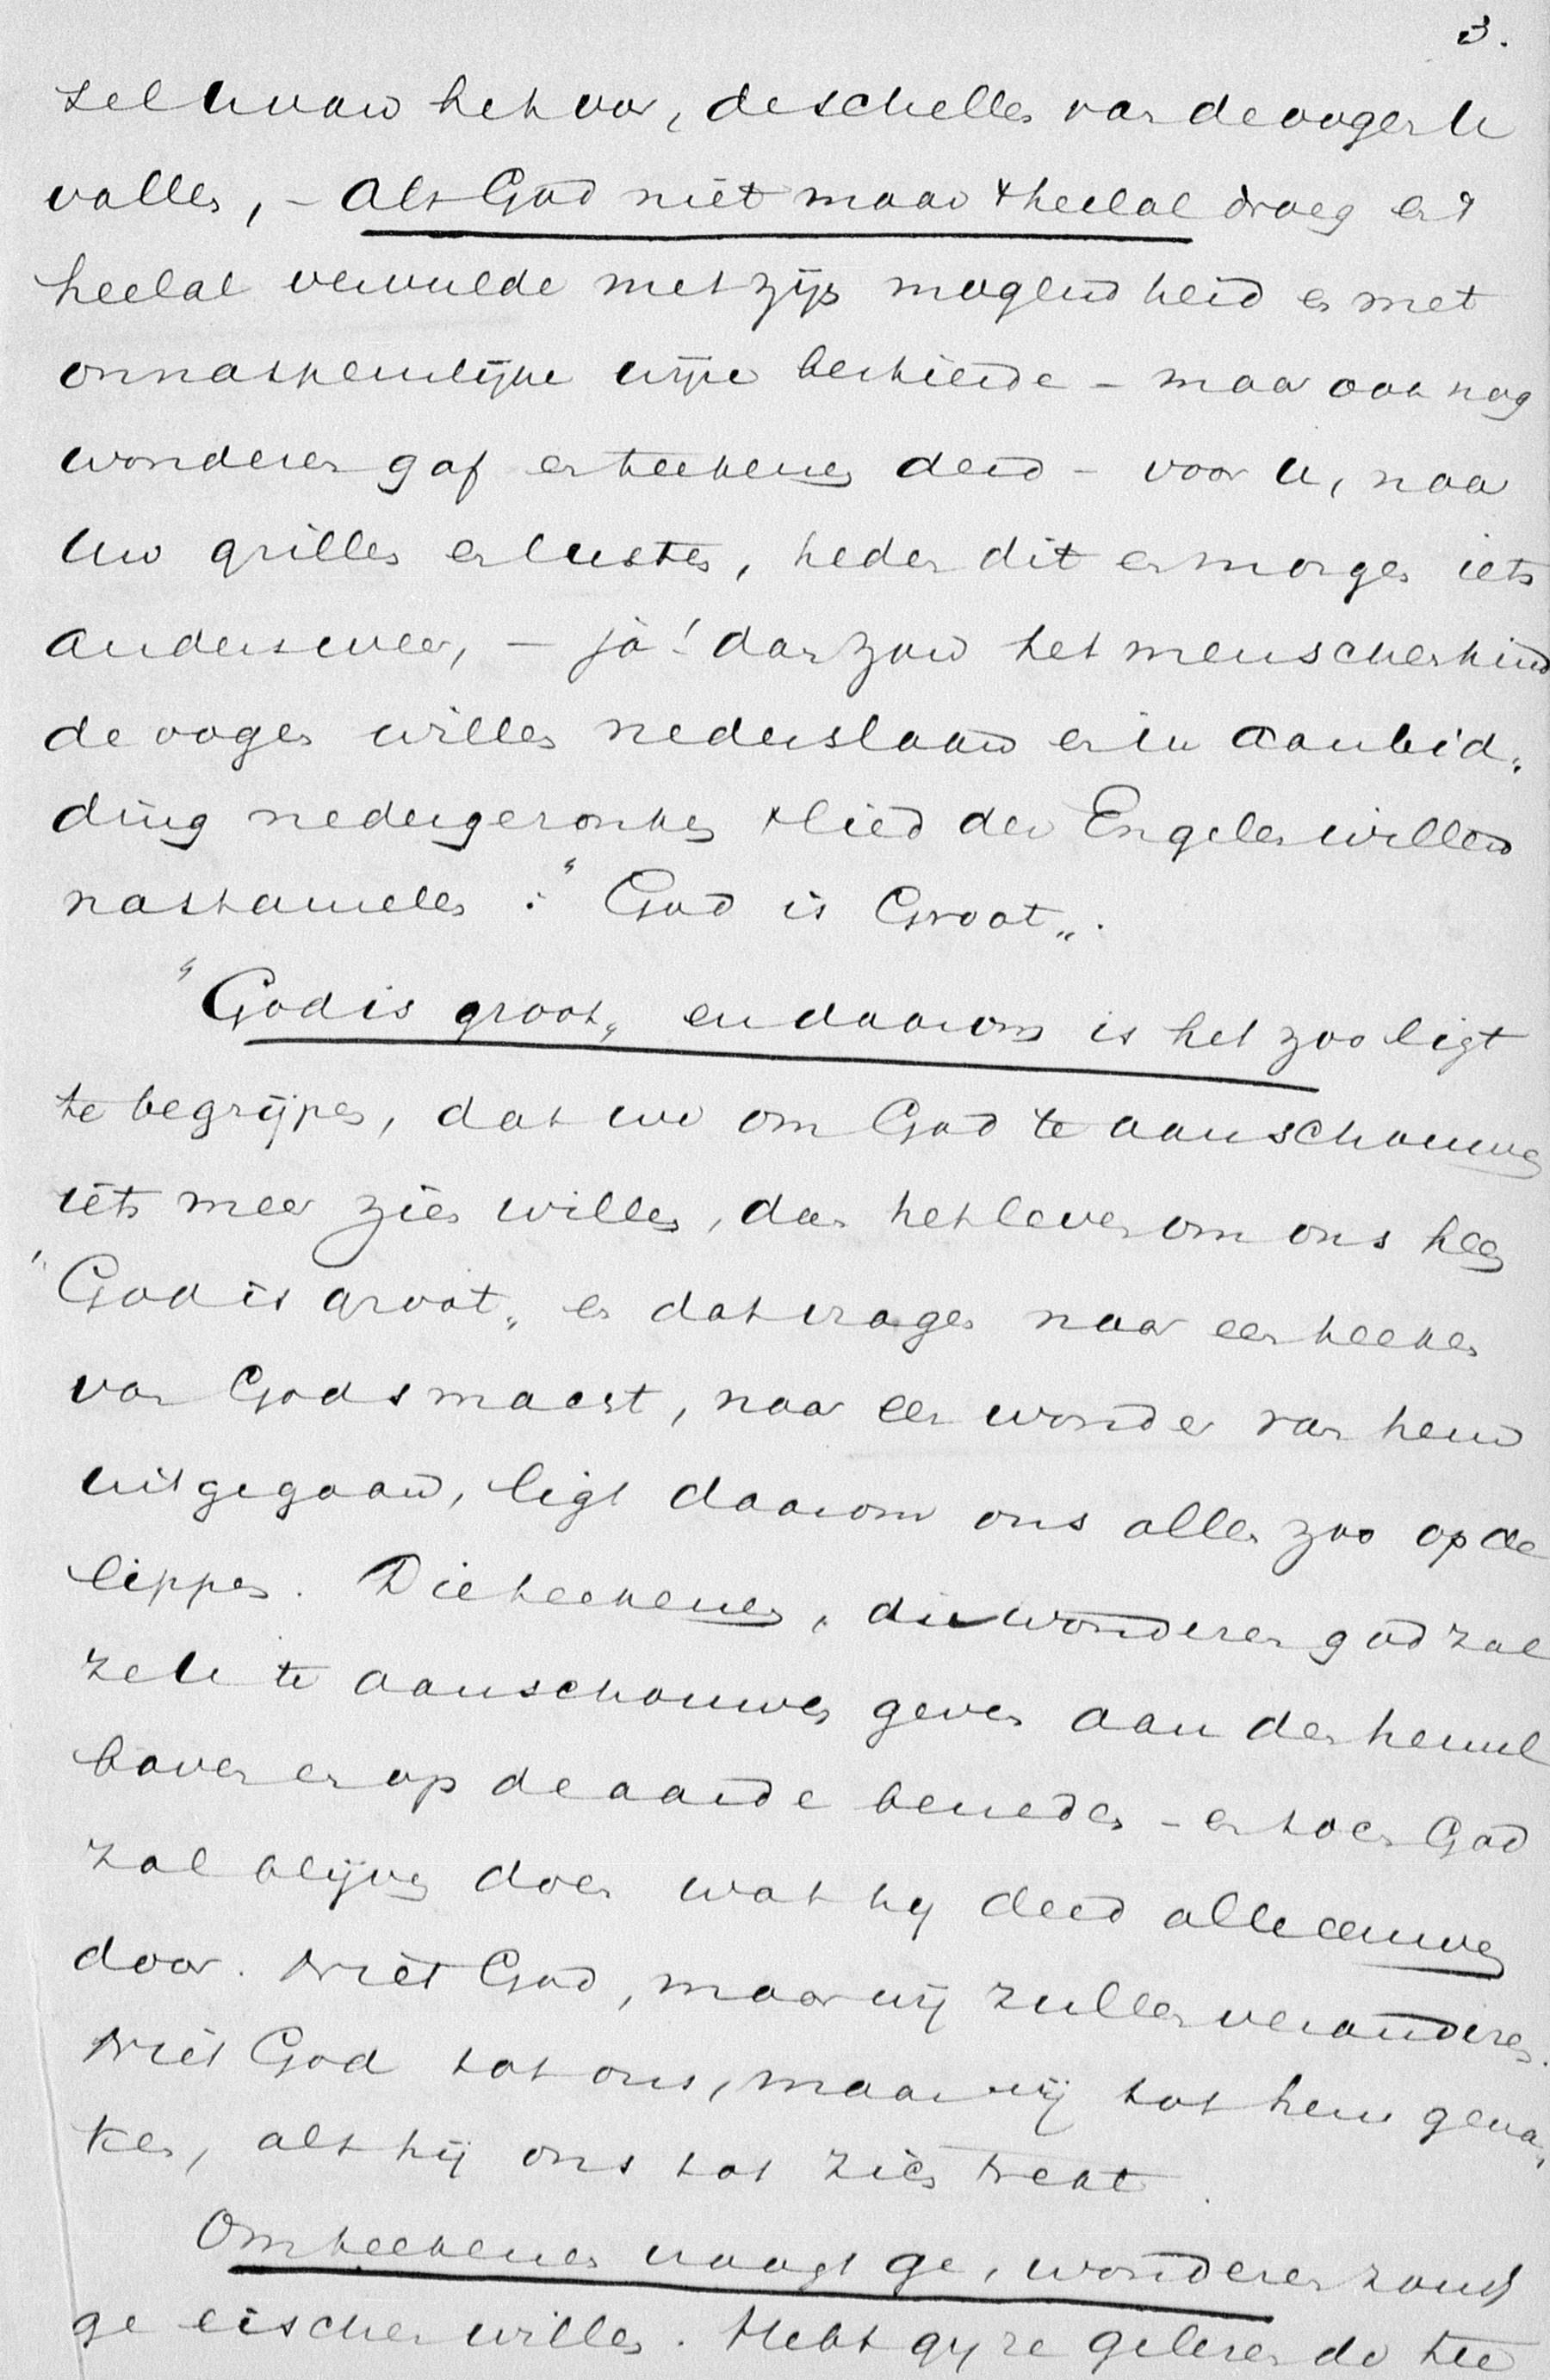 3.
sel van het oor, de schellen van de oogen U
vallen, – Als God niet maar 't heelal droeg en 't
heelal vervulde met zijn mogendheid en met
onnaspeurlijke wijze bestierde – maar ook nog
wonderen gaf en teekenen deed – voor U, naar
Uw grillen en lusten, heden dit en morgen iets
anders weer, – ja! dan zou het menschenkind
de oogen willen nederslaan en in aanbid„
ding nedergezonken 't lied der Engelen willen
nastamelen : "God is Groot„.
"God is groot„ en daarom is het zoo ligt
te begrijpen, dat we om God te aanschouwen
iets meer zien willen, dan het leven om ons heen
"God is groot„ en dat vragen naar een teeken
van Gods magt, naar een wonder van hem
uitgegaan, ligt daarom ons allen zoo op de
lippen. Die teekenen, die wonderen God zal
ze U te aanschouwen geven aan den hemel
boven en op de aarde beneden – en toch God
zal blijven doen wat hij deed alle eeuwen
door. Niet God, maar wij zullen veranderen.
Niet God tot ons, maar wij tot hem gena„
ken, als hij ons tot zich trekt.
Om teekenen vraagt ge, wonderen zoudt
ge eischen willen. Hebt gij ze gelezen de tee